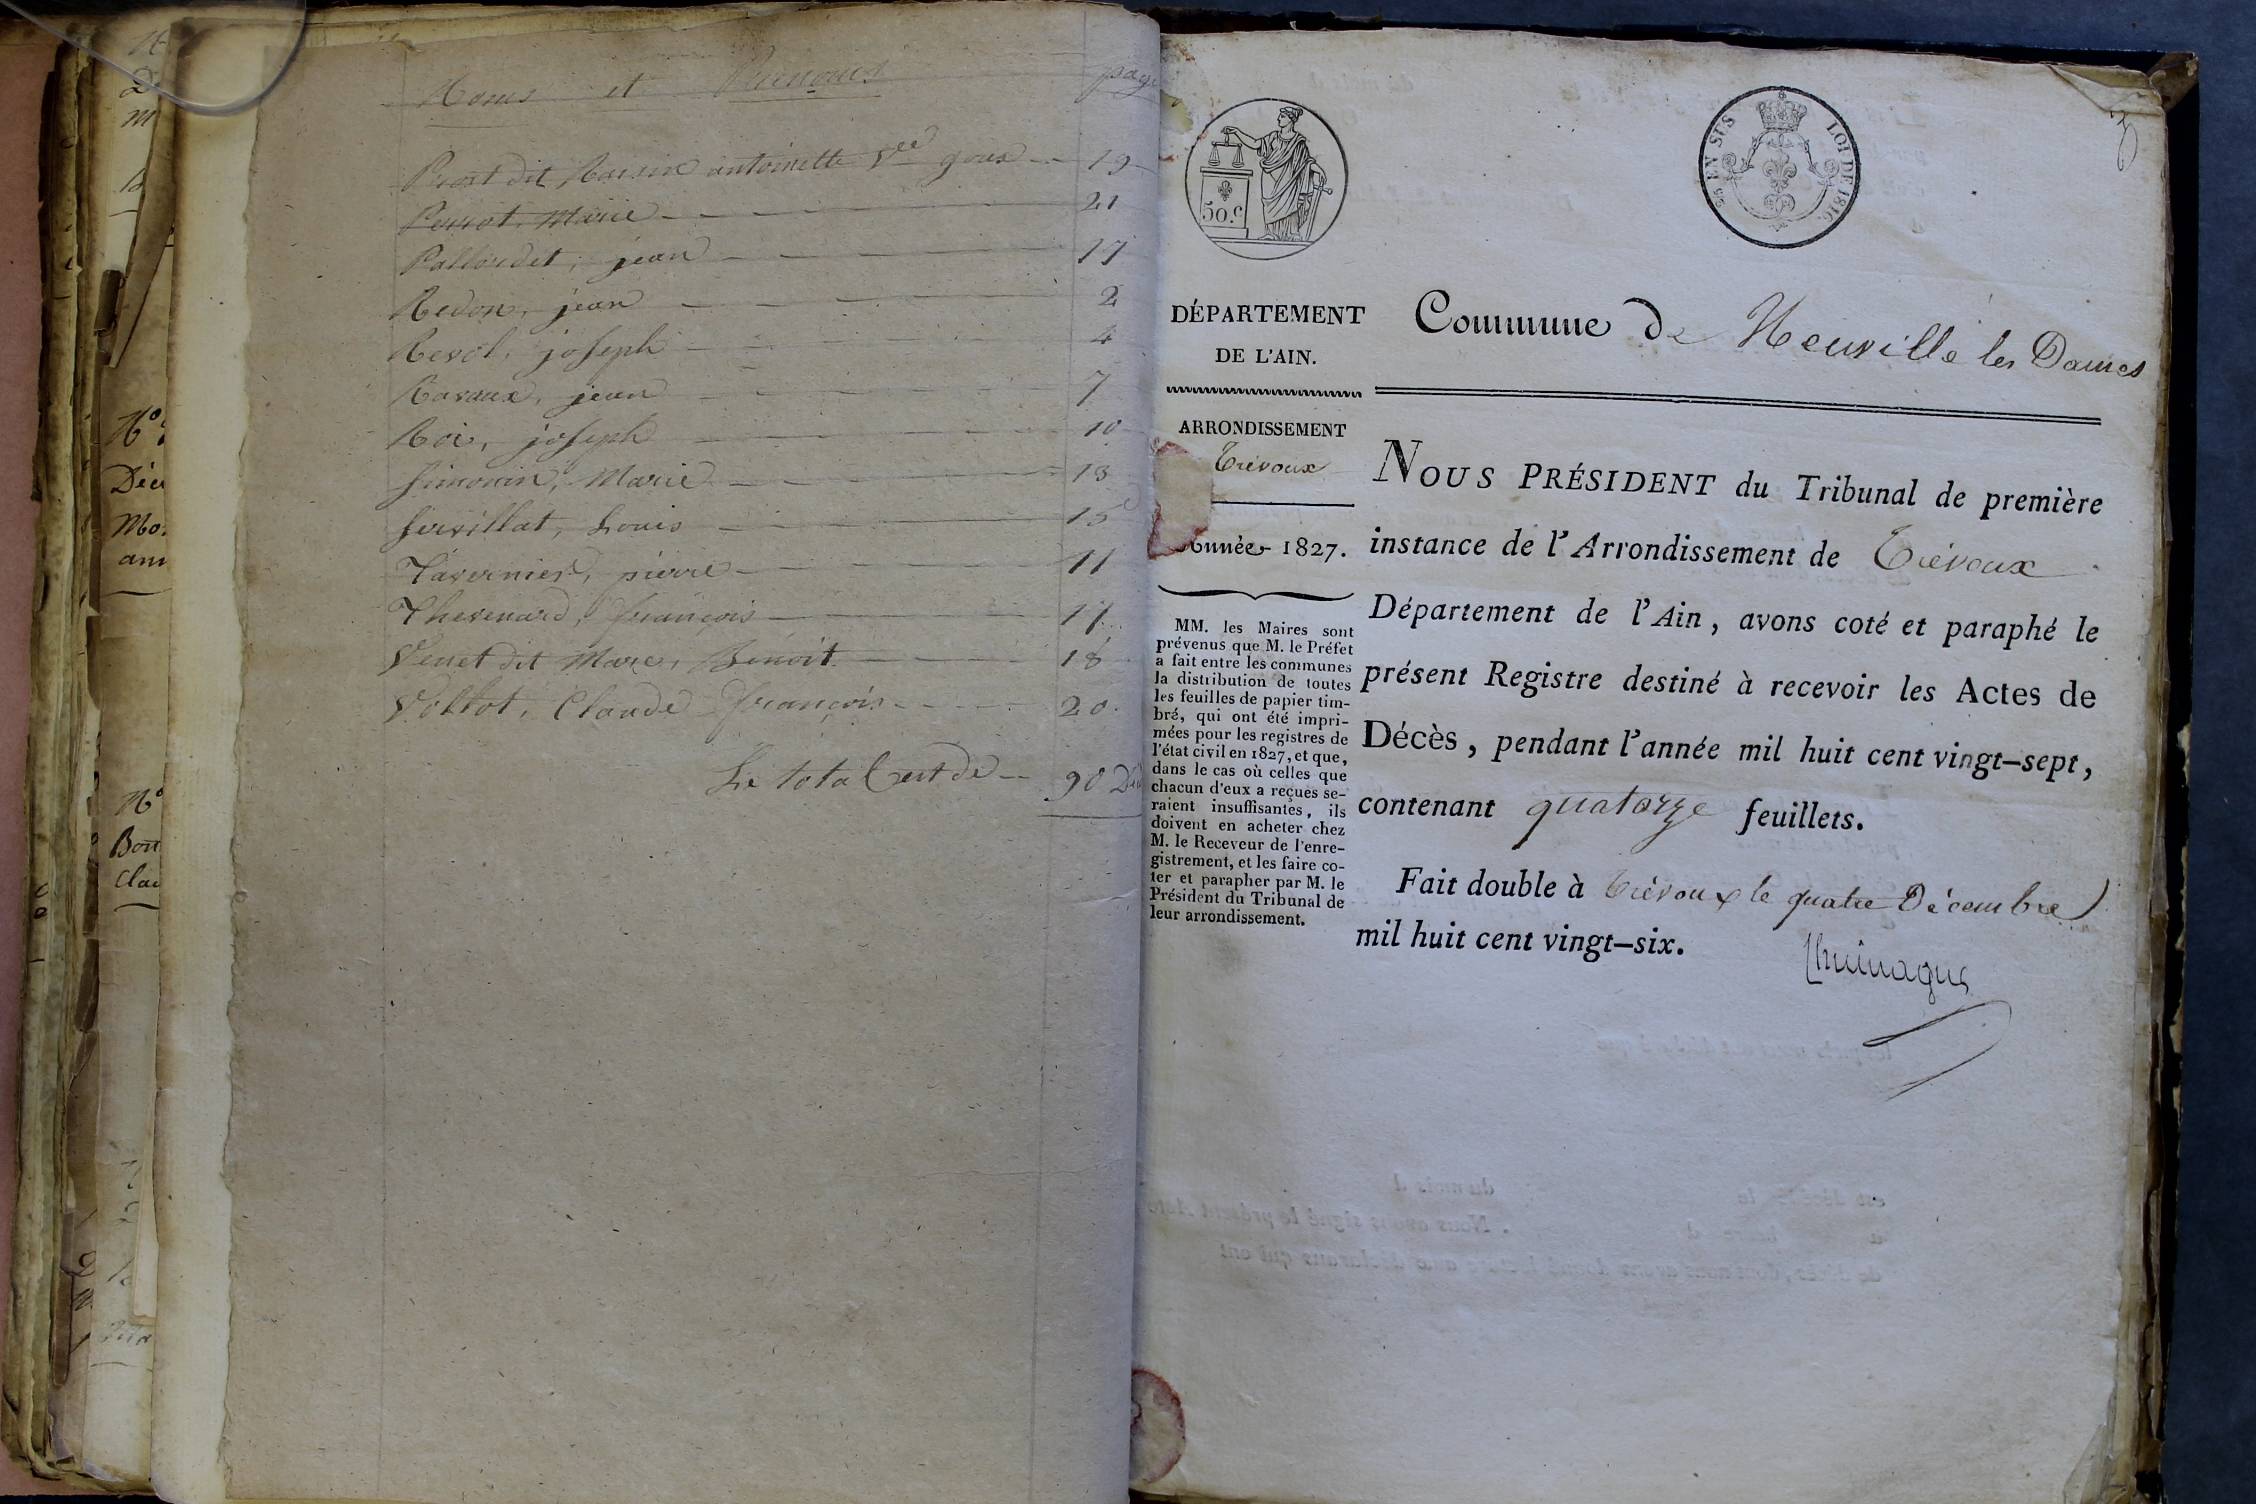 Noms et Prénoms page
Prost dit Raisin antoinette Vee goux 19
Perrot, Marie 21
Pallordet, jean 17
Redon, jean 2
Revol, joseph 4
Ravaux, jean 7
Roi, joseph 10
Simonin, Marie 13
Servillat, Louis 15
Tavernier, pierre 11
Thevenard, françois 17
Venet dit Mare, Benoit 18
Vollot, Claude françois 20.
Le total est de 90
50.c
EN SUS LOI DE 1816
DÉPARTEMENT
DE L'AIN.
Commune de Neuville les Dames
ARRONDISSEMENT
Trévoux
Année 1827.
MM. les Maires sont
prévenus que M. le Préfet
a fait entre les communes
la distribution de toutes
les feuilles de papier tim-
bré, qui ont été impri-
mées pour les registres de
l'état civil en 1827, et que,
dans le cas où celles que
chacun d'eux a reçues se-
raient insuffisantes, ils
doivent en acheter chez
M. le Receveur de l'enre-
gistrement, et les faire co-
ter et parapher par M. le
Président du Tribunal de
leur arrondissement.
NOUS PRÉSIDENT du Tribunal de première
instance de l'Arrondissement de Trévoux
Département de l'Ain, avons coté et paraphé le
présent Registre destiné à recevoir les Actes de
Décès, pendant l'année mil huit cent vingt-sept,
contenant quatorze feuillets.
Fait double à Trévoux le quatre Décembre
mil huit cent vingt-six.